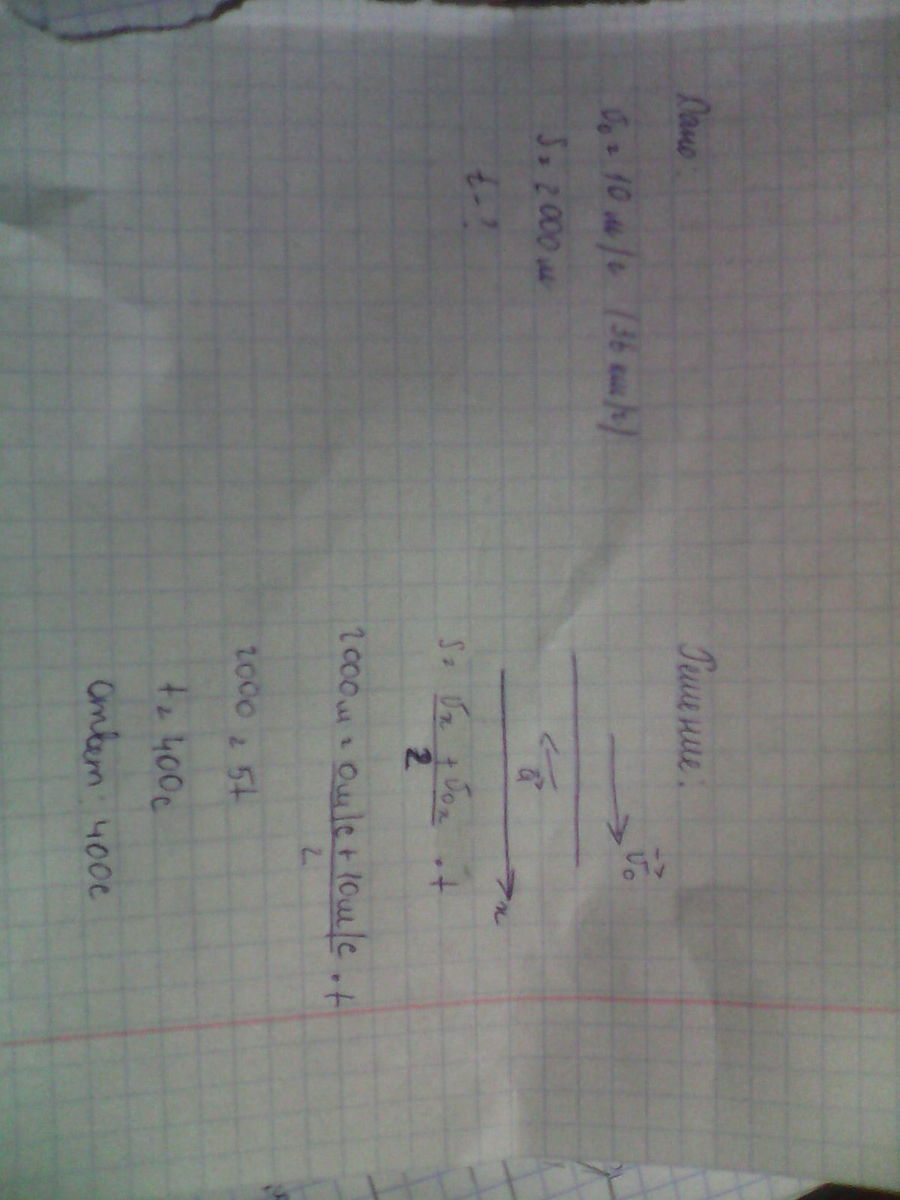 Дано:
v₀ = 10 м/с (36 км/ч)
S = 2000 м
t - ?
Решение:
v₀
a
x
S = vₓ + v₀ₓ / 2 · t
2000 м = 0 м/с + 10 м/с / 2 · t
2000 = 5t
t = 400 с
Ответ: 400 с